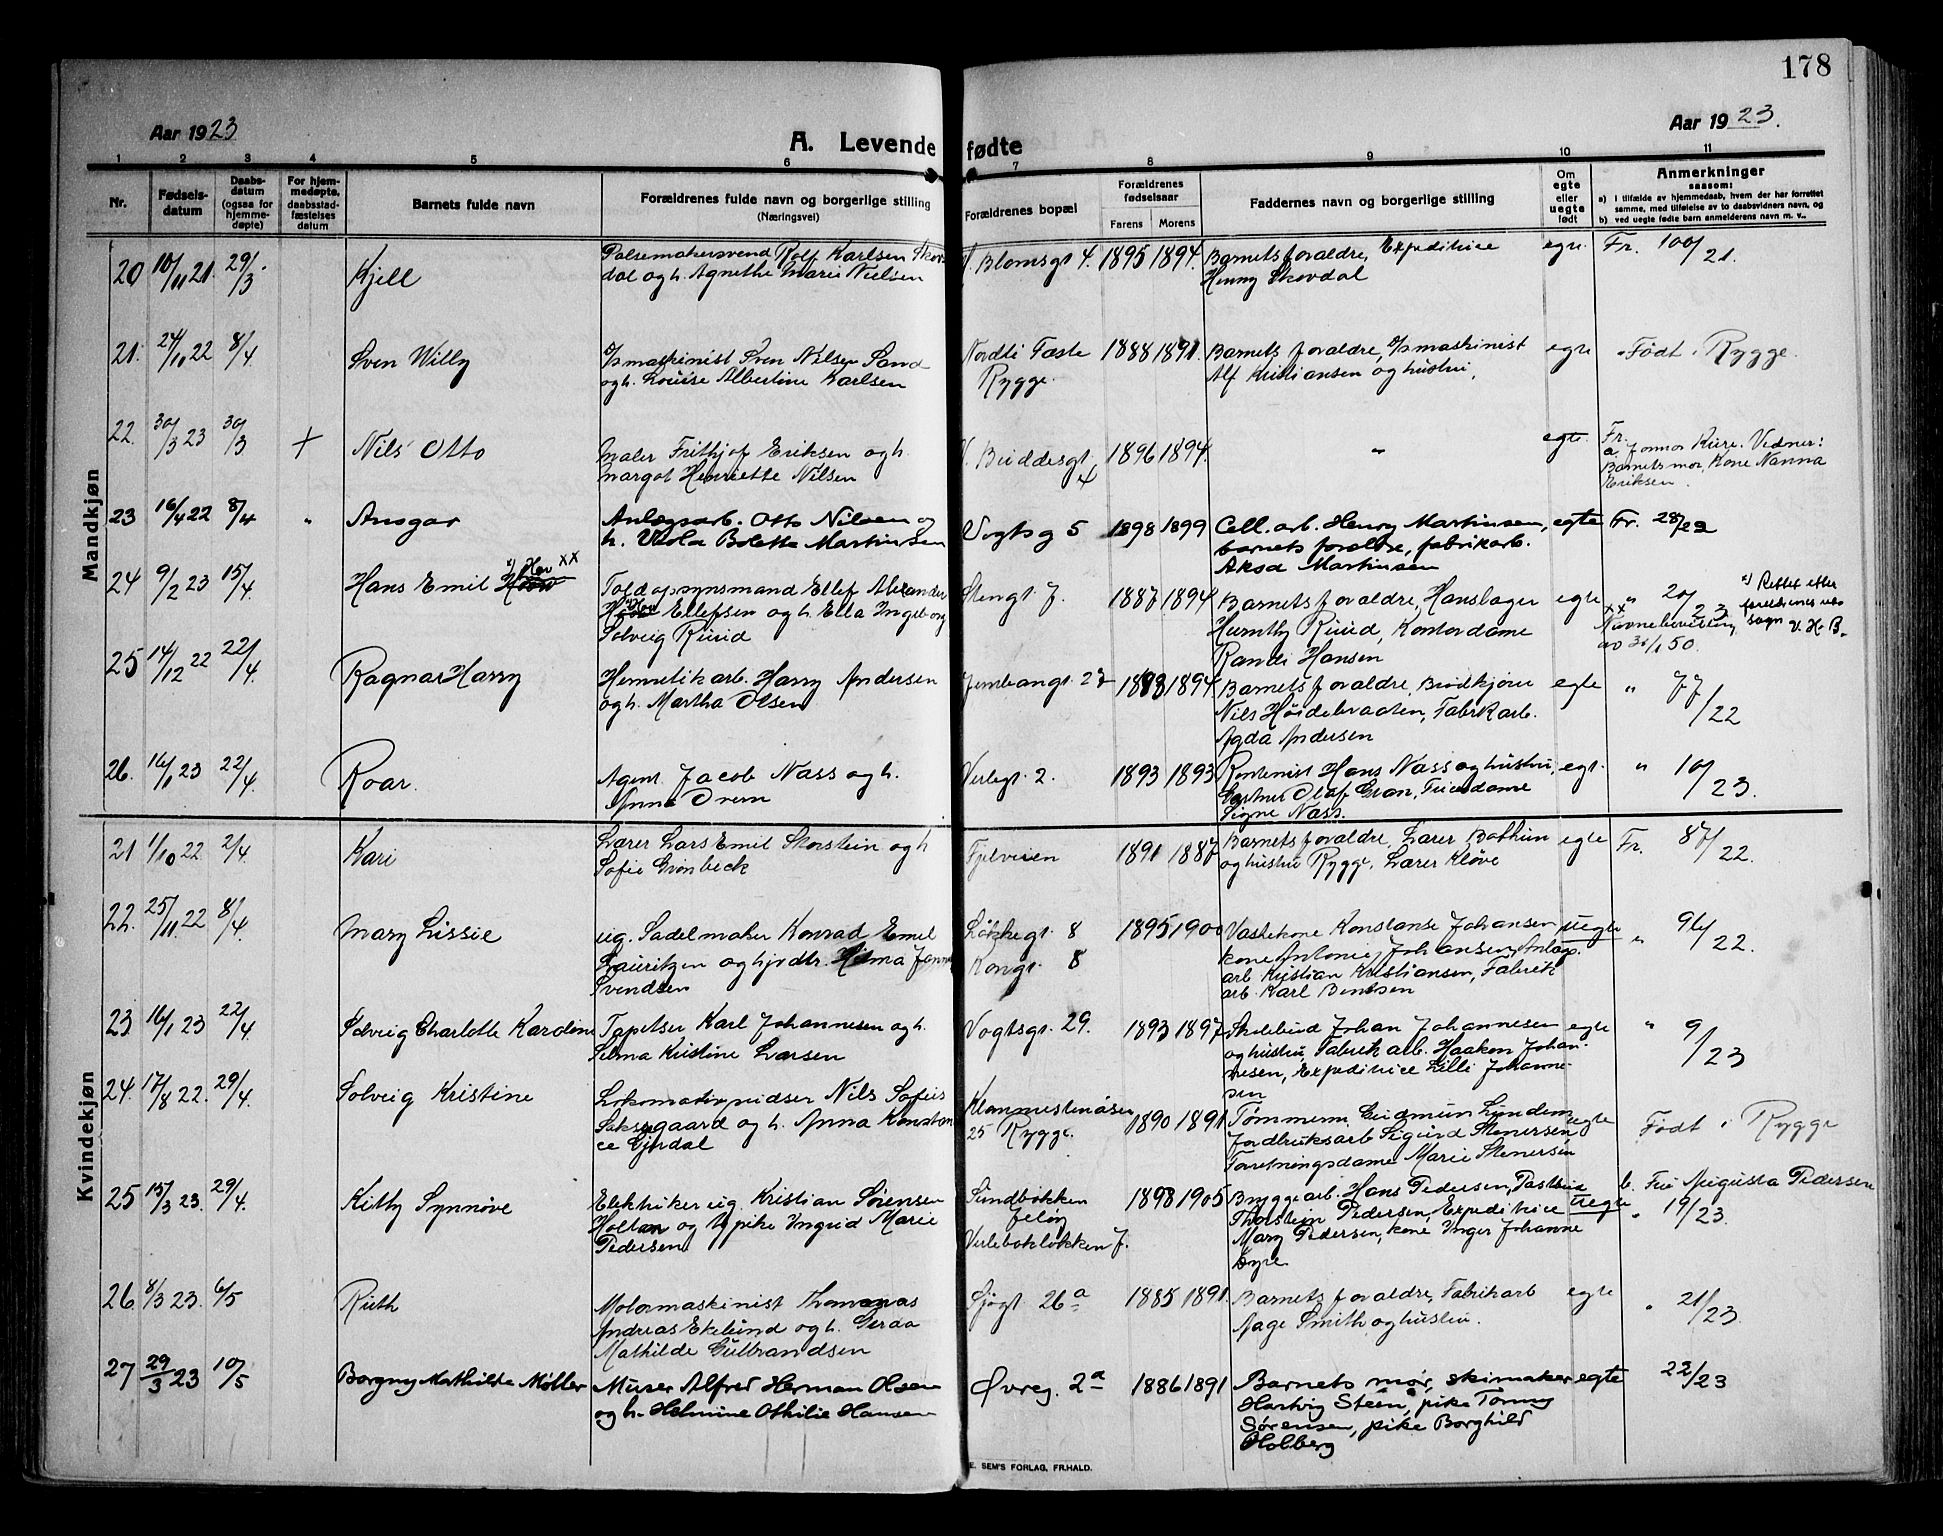 178
Aar 1923
A. Levende fødte
Aar 1923.
1 2 3 4 5 6 7 8 9 10 11
Nr.
Fødsels-
datum
Daabs-
datum
(ogsaa for
hjemme-
døpte)
For hjem-
medøpte,
daabsstad-
fæstelses
datum
Barnets fulde navn
Forældrenes fulde navn og borgerlige stilling
(Næringsvei)
Forældrenes bopæl
Forældrenes
fødselsaar
Farens Morens
Faddernes navn og borgerlige stilling
Om
egte
eller
uegte
født
Anmerkninger
saasom:
a) I tilfælde av hjemmedaab, hvem der har forrettet
samme, med tilføielse av to daabsvidners navn, og
b) ved uegte fødte barn anmelderens navn m. v.,
Mandkjøn
20 10/11 21 29/3. Kjell
Pølsemakersvend Rolf Karlsen Skov-
dal og h. Agnethe Marie Nielsen
V. Blomsgt 4. 1895 1894.
Barnets forældre, Expeditrice
Henny Skovdal
egte. Fr. 100/21.
21. 24/11 22 8/4 Sven Willy
maskinist Sven Nilsen Sand
og h. Louise Albertine Karlsen
Rygge. 1888 1891.
Barnets forældre, maskinist
Alf Kristiansen og hustru,
egte Født i Rygge.
22. 30/3 23 30/3 + Nils Otto
Maler Frithjof Eriksen og h.
Margot Henriette Nilsen
1896 1894.
"
egte. Fr.
a. Jonmor Kure. Vidner:
Barnets mor, Kone Nanna
Eriksen.
23 16/4 22 8/4 " Ansgar
Anlægsarb. Otto Nilsen og
h. Viola Bolette Martinsen
Vogtsg 5 1898 1899
Cell. arb. Henry Martinsen,
barnets forældre, fabrikarb.
Aksa Martinsen
egte Fr. 28/22
24 9/2 23 15/4 Hans Emil x) Hov xx
Toldopsynsmand Ellef Alexander
Hov Ellefsen og h. Ella Ingeborg
Solveig Ruud
Stengt. 7. 1887 1894
Barnets forældre, Hanslager
Ruud, Kontordame
Randi Hansen
egte " 20/23
x) Rettet efter
foreldrenes ut-
sagn V. H. B.
xx Navnebevilling
av 31/1 50.
25 14/12 22 22/4. Ragnar Harry
Hermetikarb. Harry Andersen
og h. Martha Olsen
Jernbangt. 27 1893 1894
Barnets forældre, Brødkjører
Nils Høidebraaten, Fabrikarb.
Agda Andersen
egte " 77/22
26. 16/1 23 22/4. Roar.
Agent Jacob Nass og h.
Anna Orem
Verlegt. 2. 1893 1893
Kontorist Hans Nass og hustru,
Gartner Olaf Gran,
Signe Nass.
egt. " 10/23.
Kvindekjøn
21 1/10 22. 2/4. Kari
Lærer Lars Emil Storstein og h
Sofie Grønbeck
Fjelveien 1891 1887
Barnets forældre, Lærer Bothun
og hustru Rygge, Lærer Kløve
egte Fr. 87/22.
22. 25/11. 22 8/4. Mary Lissie
ug. Sadelmaker Konrad Emil
Lauritzen og hjvdtr. Hilma Jenny
Svendsen
Løkkegt. 8
Kongt. 8
1895 1900
Vaskekone Konstanse Johansen
kone Antonie Johansen, Anlæg.
arb Kristian Kristiansen, Fabrik
arb. Karl Bentsen
uegte " 96/22.
23 16/1 23 22/4. Solveig Charlotte Karoline
Tapetser Karl Johannesen og h.
Selma Kristine Larsen
Vogtsgt. 29. 1893 1897
Skolebud Johan Johannesen
og hustru, Fabrik arb. Haakon Johan-
nesen, Expeditrice Lilli Johanne-
sen
egte " 9/23
24. 17/8 22. 29/4. Solveig Kristine
Lokomotivpudser Nils Sofus
Saksegaard og h. Anna Konstan
ce Gjerdal
25 Rygge. 1890 1891
Tømmerm. Gudmun Lunden
Jordbruksarb Sigurd Stenersen,
Forretningsdame Marie Stenersen
egte Født i Rygge
25 15/3 23. 29/4. Kitty Synnøve
Elektriker ug. Kristian Sørensen
Holtan og Upike Ingrid Marie
Pedersen
Sundbakken
Jeløy
Verlebakløkken 7.
1898 1905
Bryggearb. Hans Pedersen,
Thorstein Pedersen, Expeditrice
Mary Pedersen, kone Inger Johanne
Dyre
uegte b. Fru Augusta Pedersen
" 19/23.
26. 8/3 23. 6/5 Ruth
Motormaskinist Thommas
Andreas Ekelund og h. Gerda
Mathilde Gulbrandsen
Sjøgt. 26a 1885 1891.
Barnets forældre, Fabrikarb
Aage Smith og hustru.
egte " 21/23
27 29/3 23 10/5 Borgny Mathilde Møller
Murer Alfred Herman Olsen
og h. Helmine Othilie Hansen
Øvreg. 2a 1886 1891
Barnets mor, skimaker
Hartvig Steen, pike Tonny
Sørensen, pike Borghild
Holberg
egte 22/23
E. SEM'S FORLAG, FR.HALD.